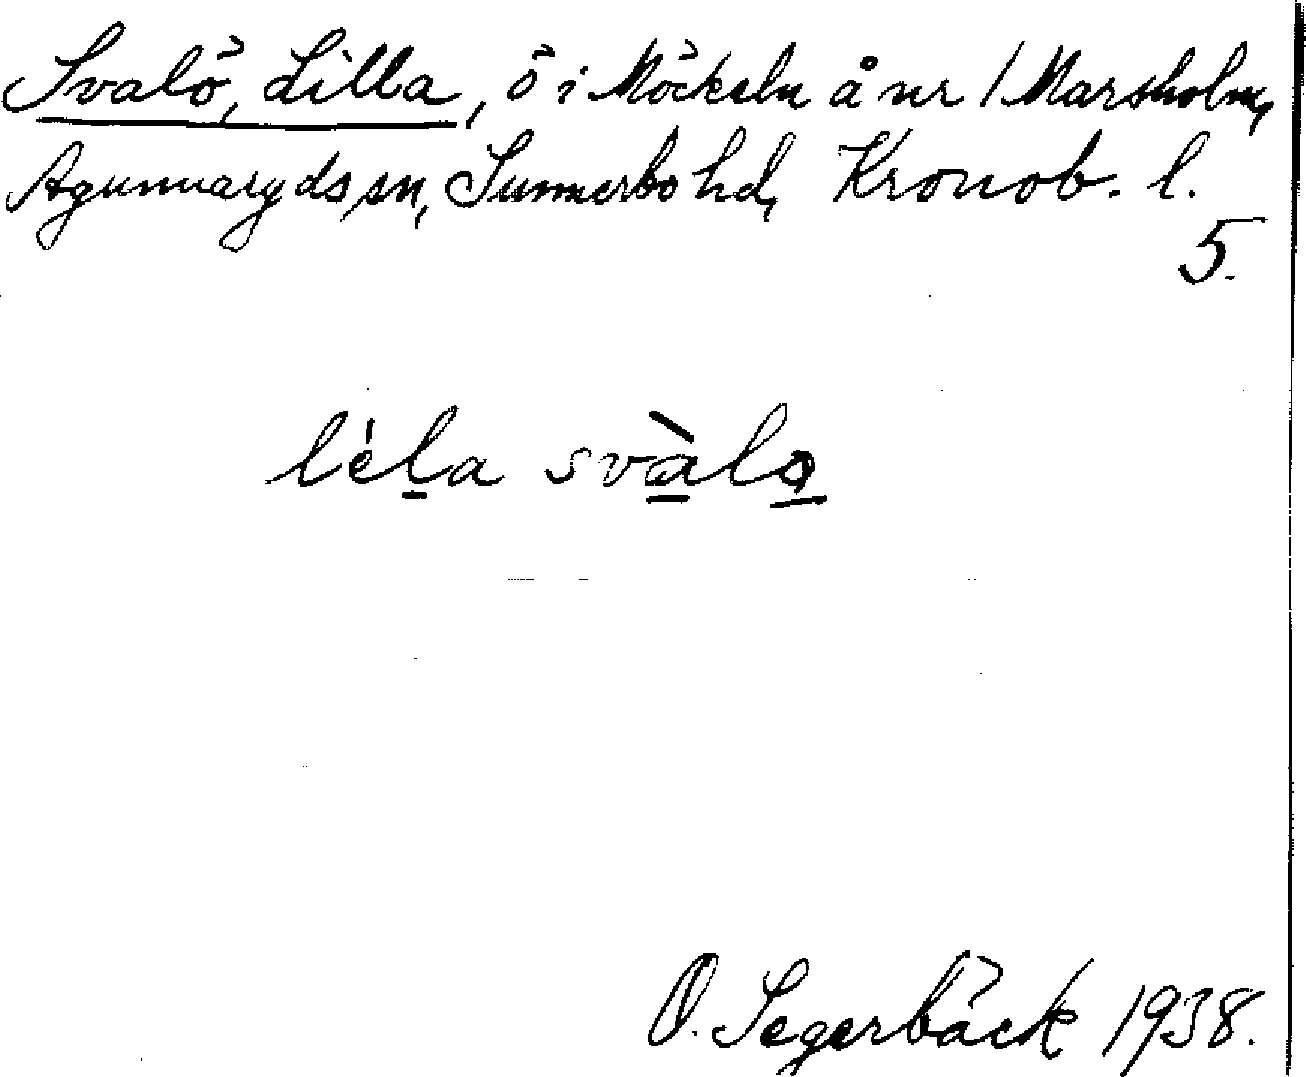 Svalö, Lilla, ö i Möckeln å nr 1 Marsholm,
Agunnaryds sn, Sunnerbo hd, Kronob. l.
5.
léḻa svàlo
O. Segerbäck 1938.